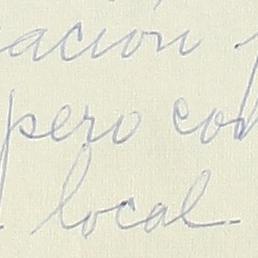 ación
pero co
local